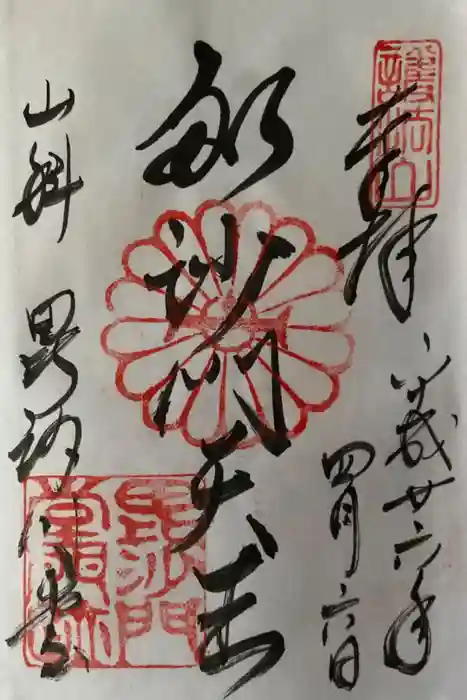 奉拝
平成廿六年
四月六日
毘沙門天王
山科
毘沙門堂
護法山
毘沙門
堂門跡